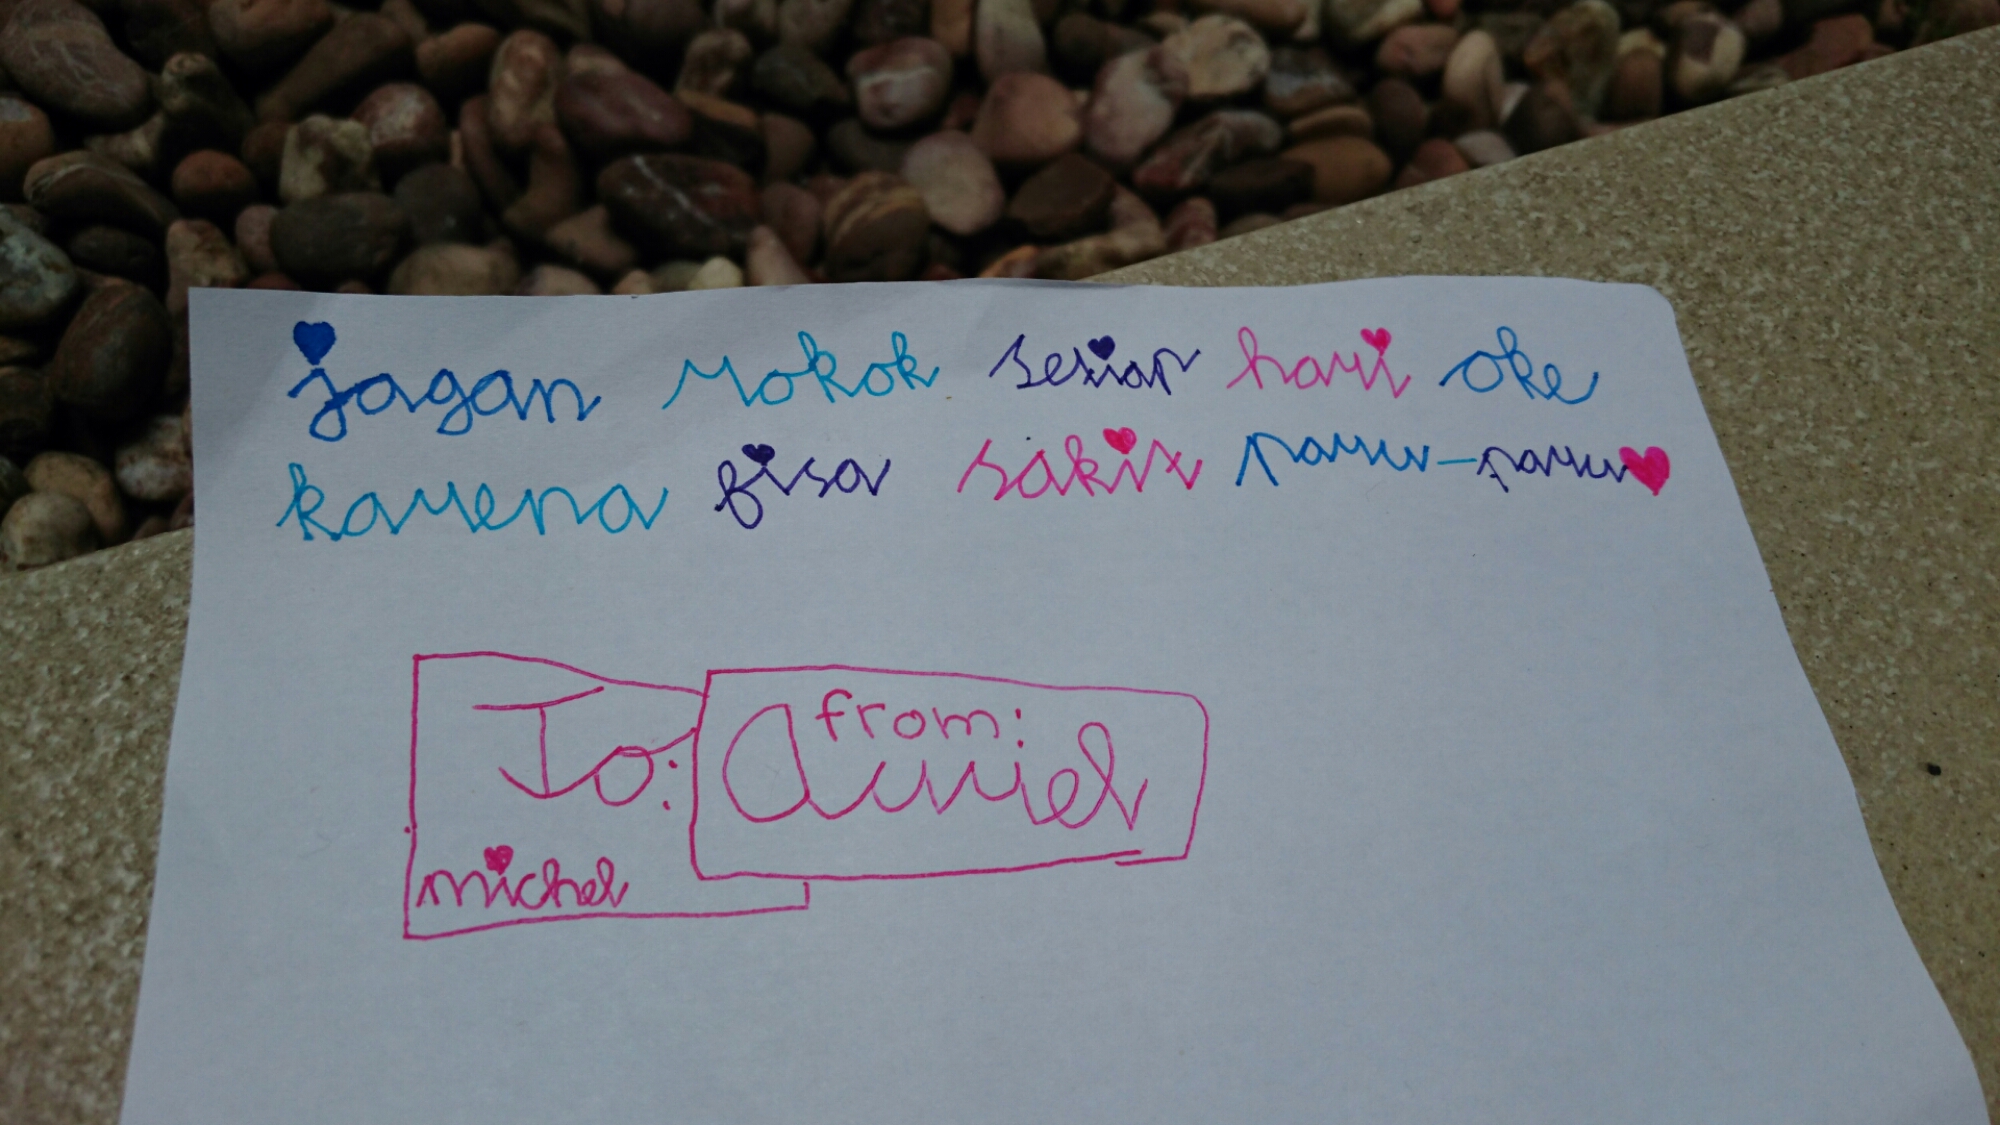 jagan rokok setiap hari oke
karena bisa sakit paru-paru
To:
michel
from:
Aurriel